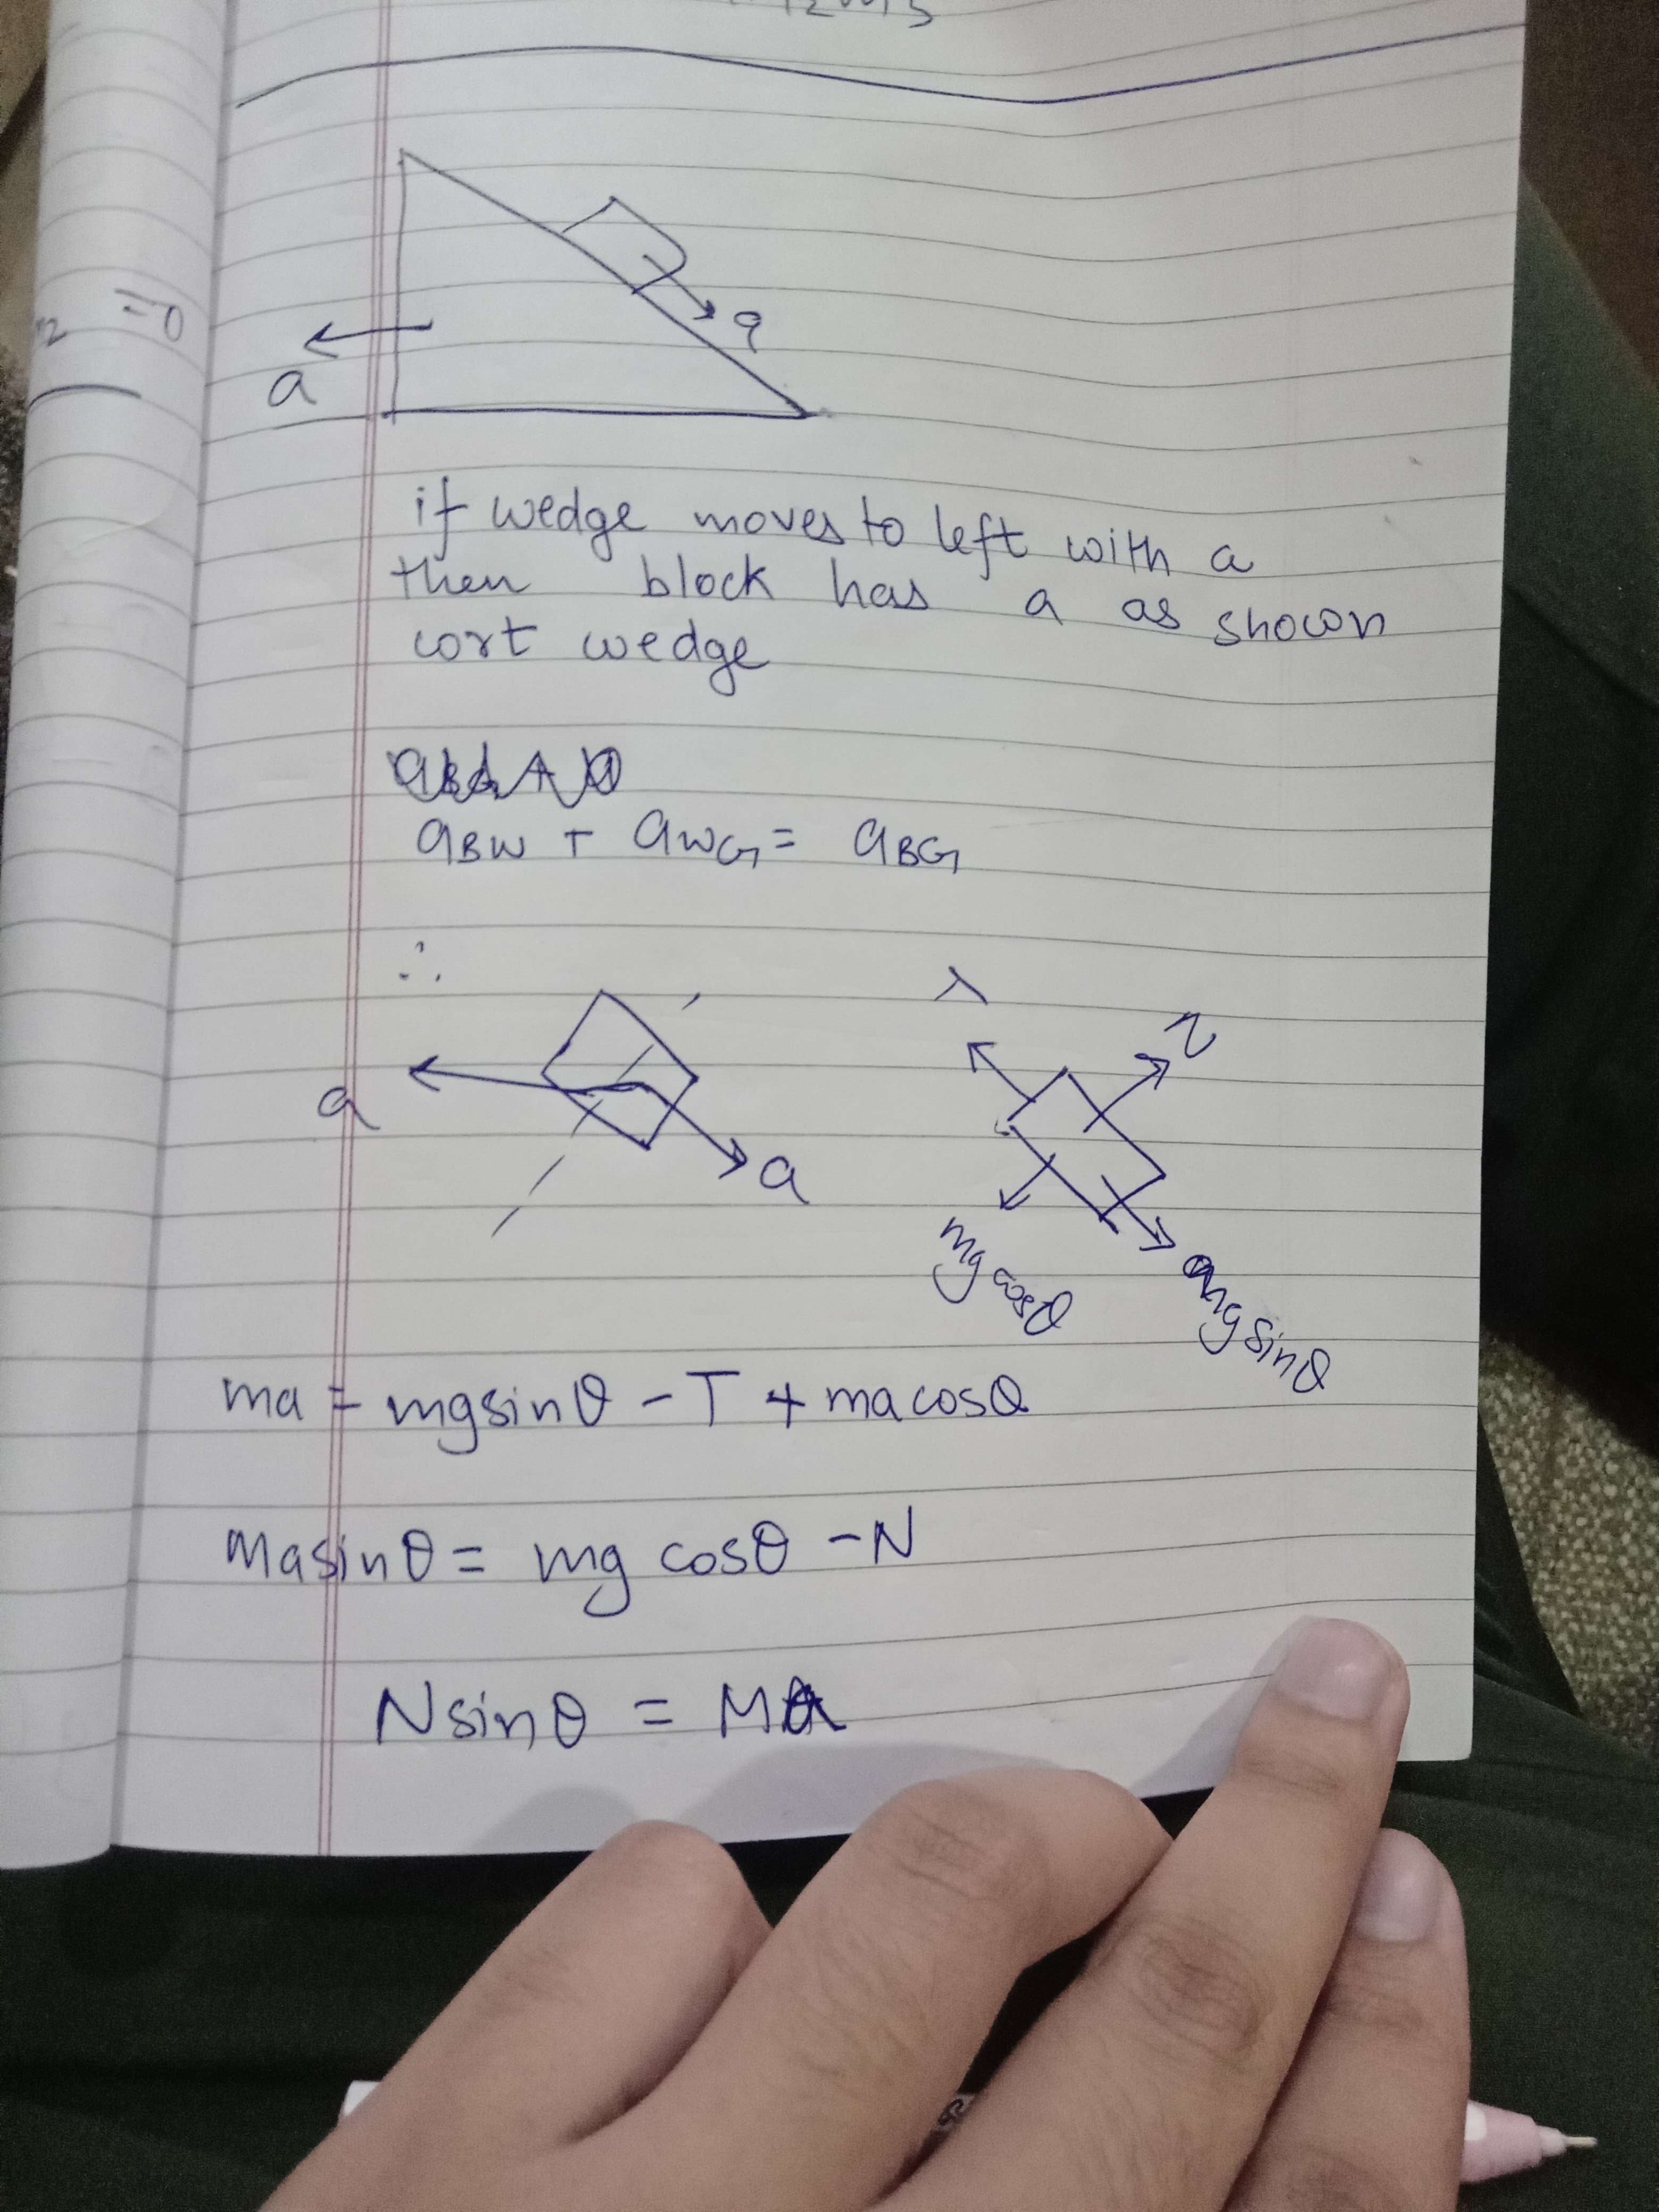 =0
a
a
if wedge moves to left with a
then block has a as shown
wrt wedge
aBW + aWG = aBG
∴
a
a
T
N
mg cosθ
mg sinθ
ma = mg sinθ - T + ma cosθ
masinθ = mg cosθ - N
N sinθ = Ma